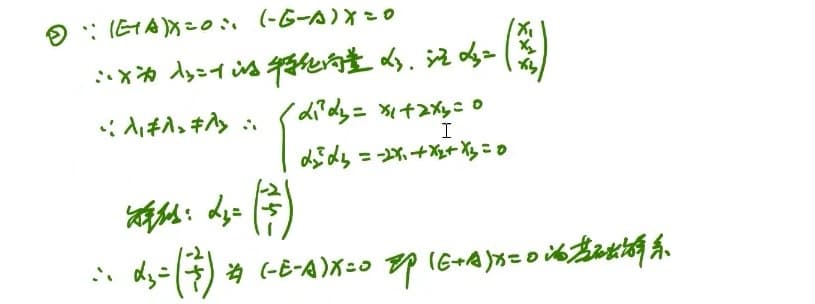 ② ∵ (E+A)x=0 ∴ (-E-A)x=0
∴ x为 λ₃=-1 的 特征向量 α₃. 记 α₃=(x₁ x₂ x₃)
∵ λ₁≠λ₂≠λ₃ ∴ { α₁ᵀα₃ = x₁+2x₃=0
α₂ᵀα₃ = -2x₁+x₂+x₃=0
解得: α₃=(-2 -5 1)
∴ α₃=(-2 -5 1) 为 (-E-A)x=0 即 (E+A)x=0 的基础解系